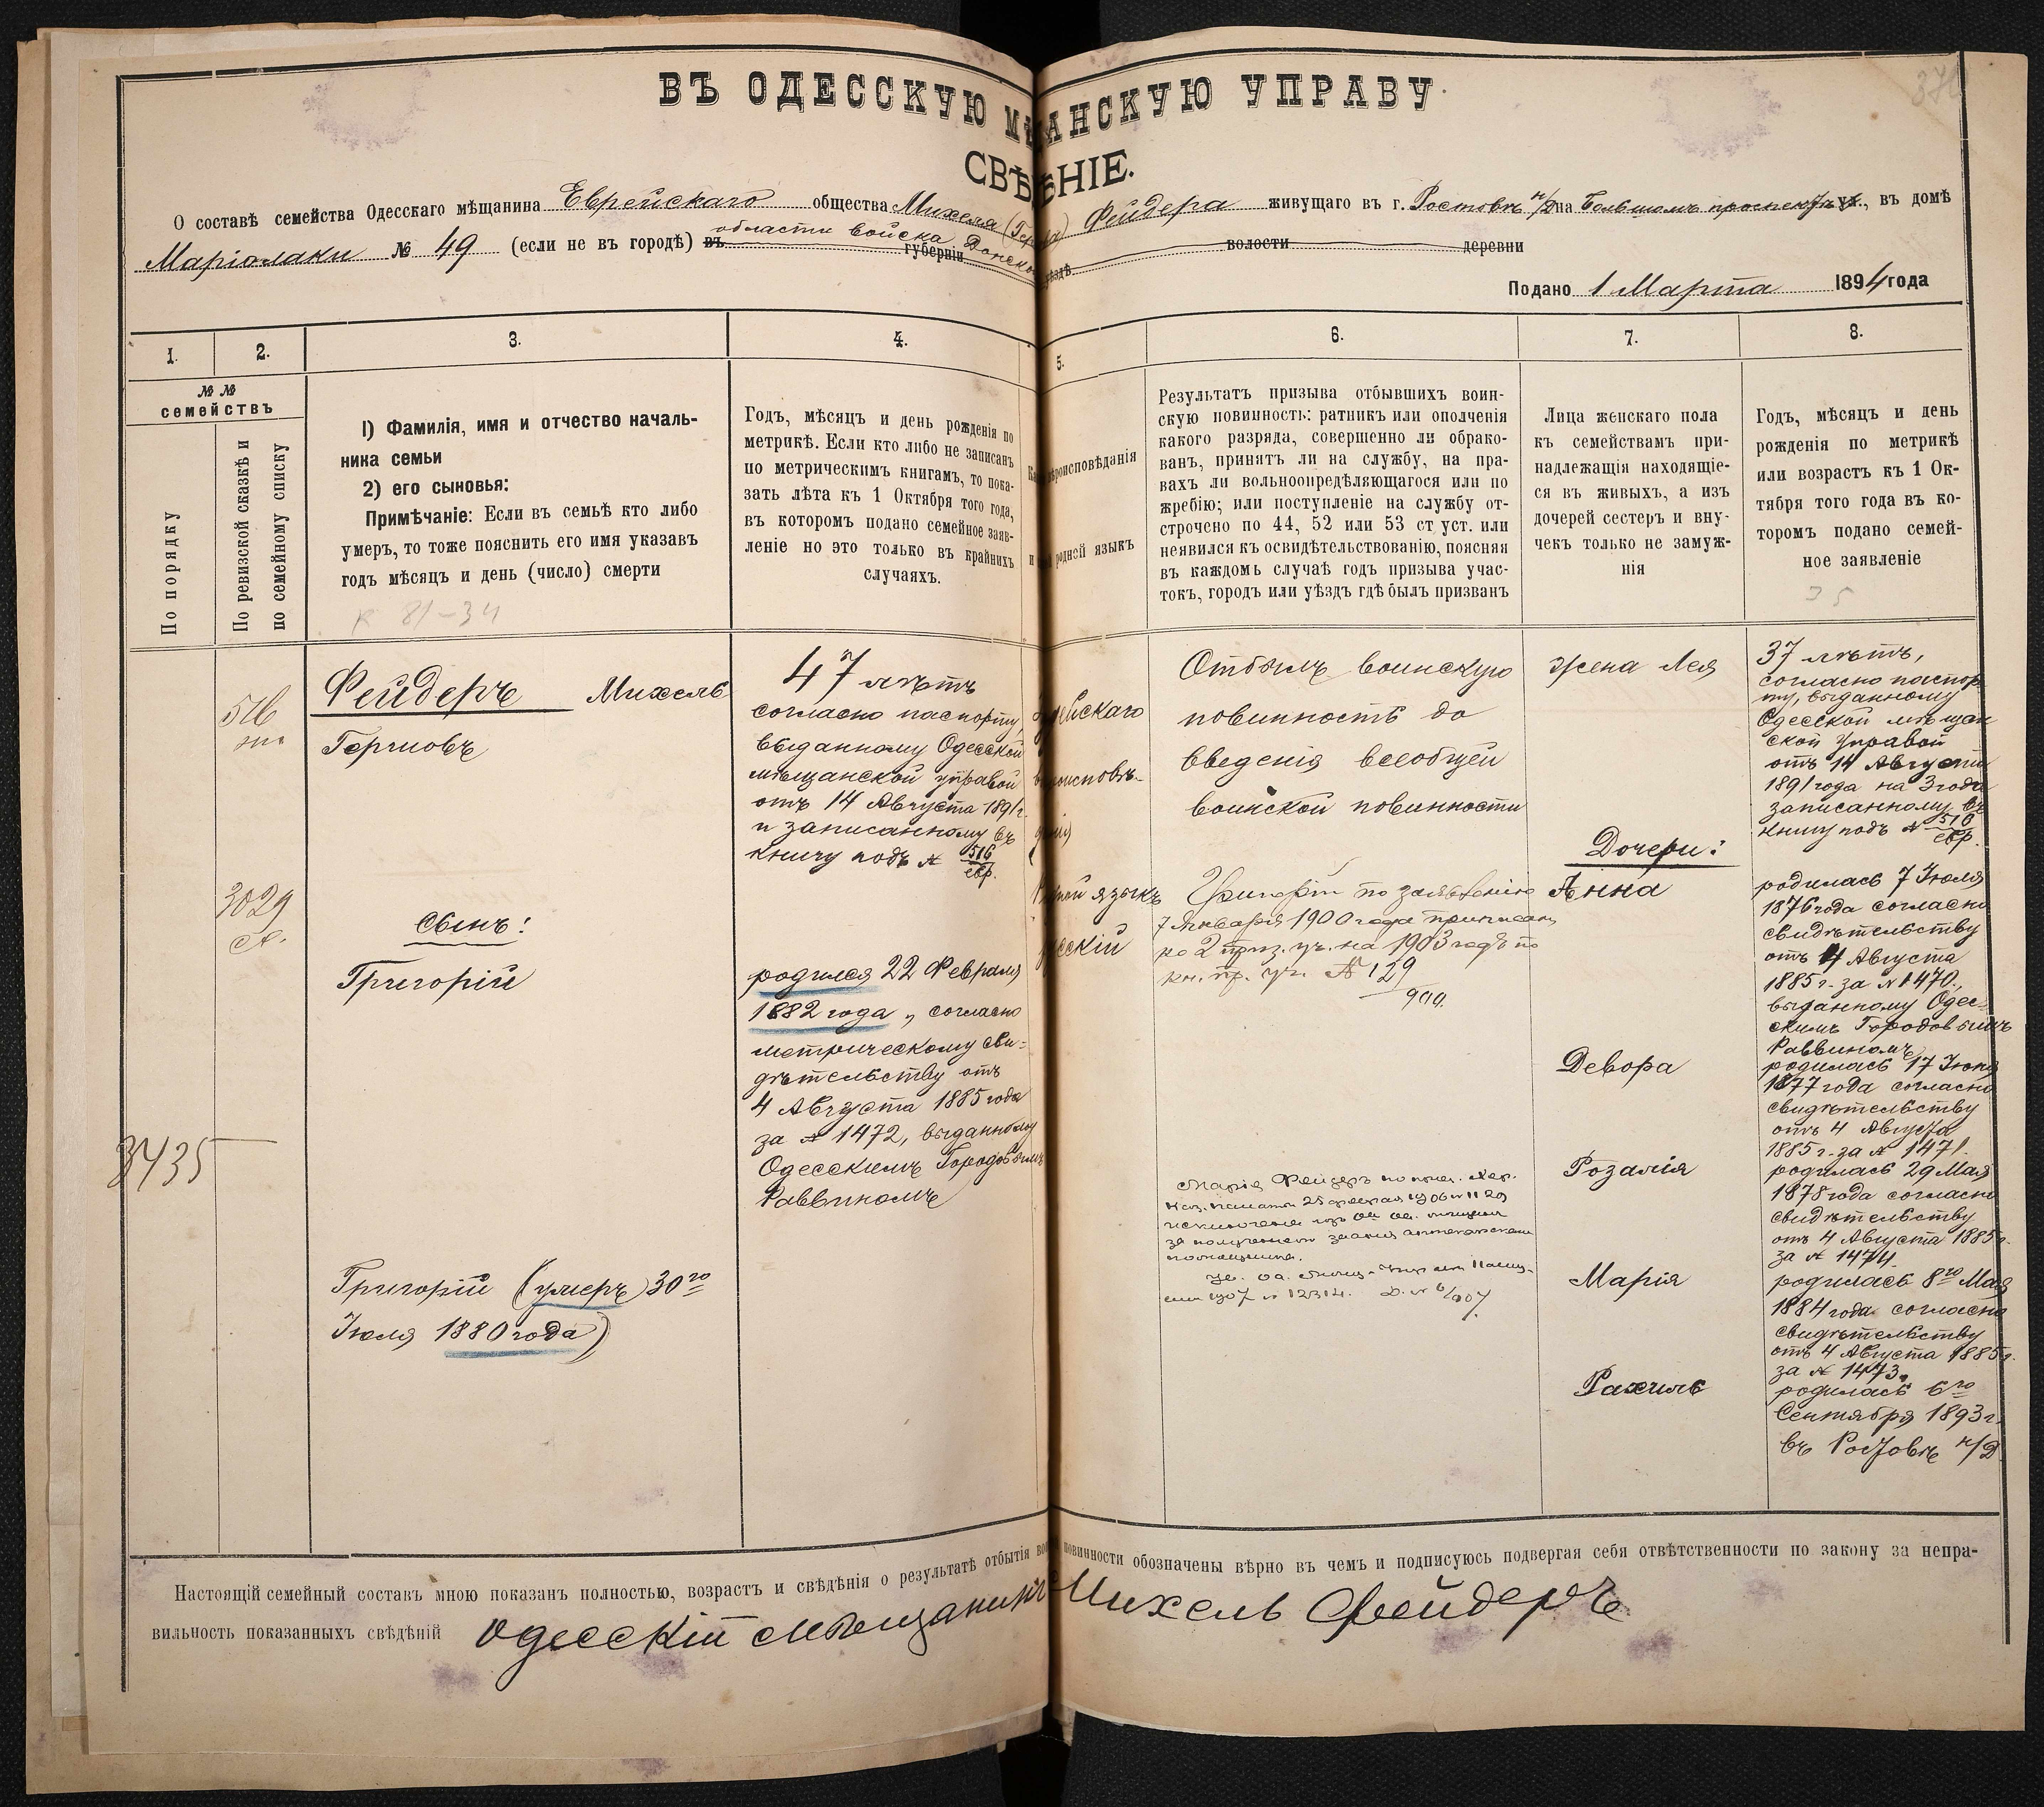 ВЪ ОДЕССКУЮ МѢЩАНСКУЮ УПРАВУ
СВѢДѢНІЕ.
О составѣ семейства Одесскаго мѣщанина Еврейскаго общества Михеля Фейдера живущаго въ г. Ростовѣ н/Д на Большомъ проспектѣ ул., въ домѣ
Маріолаки № 49 (если не въ городѣ) въ области войска Донского губерніи уѣздѣ волости деревни
Подано 1 Марта 1894 года
1. 2. 3. 4. 5. 6. 7. 8.
№ №
семействъ
По порядку
По ревизской сказкѣ и
по семейному списку
1) Фамилія, имя и отчество началь-
ника семьи
2) его сыновья:
Примѣчаніе: Если въ семьѣ кто либо
умеръ, то тоже пояснить его имя указавъ
годъ мѣсяцъ и день (число) смерти
81-34
Годъ, мѣсяцъ и день рожденія по
метрикѣ. Если кто либо не записанъ
по метрическимъ книгамъ, то пока-
зать лѣта къ 1 Октября того года,
въ которомъ подано семейное заяв-
леніе но это только въ крайнихъ
случаяхъ.
вѣроисповѣданія
и родной языкъ
Результатъ призыва отбывшихъ воин-
скую повинность: ратникъ или ополченія
какого разряда, совершенно ли обрако-
ванъ, принятъ ли на службу, на пра-
вахъ ли вольноопредѣляющагося или по
жребію; или поступленіе на службу от-
строчено по 44, 52 или 53 ст уст. или
неявился къ освидѣтельствованію, поясняя
въ каждомъ случаѣ годъ призыва учас-
токъ, городъ или уѣздъ гдѣ былъ призванъ
Лица женскаго пола
къ семействамъ при-
надлежащія находящіе-
ся въ живыхъ, а изъ
дочерей сестеръ и вну-
чекъ только не замуж-
нія
Годъ, мѣсяцъ и день
рожденія по метрикѣ
или возрастъ къ 1 Ок-
тября того года въ ко-
торомъ подано семей-
ное заявленіе
35
516
3029
3435
Фейдеръ Михель
Гершовъ
Сынъ:
Григорій
Григорій (умеръ 30го
Іюля 1880 года)
47 лѣтъ
согласно паспорту,
выданному Одесской
мѣщанской управой
отъ 14 Августа 1891 г.
и записанному въ
книгу подъ № 516
евр.
родился 22 Февраля
1882 года, согласно
метрическому сви-
дѣтельству отъ
4 Августа 1885 года
за № 1472, выданному
Одесскимъ Городовымъ
Раввиномъ
Еврейскаго
вѣроисповѣ-
данія
Родной языкъ
русскій
Отбылъ воинскую
повинность до
введенія всеобщей
воинской повинности
Григорій по заявленію
7 Января 1900 года приписанъ
ко 2 приз. уч. на 1903 годъ по
кн. пр. уч. № 129
900.
Марія Фейдеръ
каз. палаты 25 февраля 1906 № 1129
исключена изъ
за полученіемъ званія аптекарской
помощницы.
1907 № 12314.
жена Лея
Дочери:
Анна
Девора
Розалія
Марія
Рахиль
37 лѣтъ,
согласно паспор-
ту, выданному
Одесской мѣщан
ской Управой
отъ 14 Августа
1891 года на 3 года
записанному въ
книгу подъ № 516
евр.
родилась 7 Іюля
1876 года согласно
свидѣтельству
отъ 4 Августа
1885 г. за № 1470,
выданному Одес-
скимъ Городовымъ
Раввиномъ
родилась 17 Іюня
1877 года согласно
свидѣтельству
отъ 4 Августа
1885 г. за № 1471.
родилась 29 Мая
1878 года согласно
свидѣтельству
отъ 4 Августа 1885 г.
за № 1474.
родилась 8го Мая
1884 года согласно
свидѣтельству
отъ 4 Августа 1885 г.
за № 1473.
родилась 6го
Сентября 1893 г.
въ Ростовѣ н/Д
Настоящій семейный составъ мною показанъ полностью, возрастъ и свѣдѣнія о результатѣ отбытія воин повинности обозначены вѣрно въ чемъ и подписуюсь подвергая себя отвѣтственности по закону за непра-
вильность показанныхъ свѣдѣній Одесскій мѣщанинъ Михель Фейдеръ